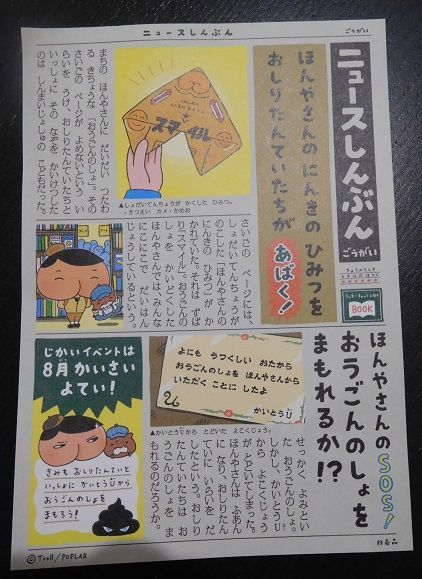 ニュースしんぶん
ごうがい
ニュースしんぶん
ごうがい
BOOK
ほんやさんのにんきのひみつを
おしりたんていたちが
あばく!
スマイル
▲しょだいてんちょうが かくした ひみつ。
さつえい カメ・かめお
まちの ほんやさんに だいだい つたわ
る きちょうな「おうごんのしょ」。その
さいごの ページが よめないという いい
らいを うけ、おしりたんていたちと
いっしょに その なぞを かいけつした
のは しんまいじょしゅの こどもだった。
さいごの ページには、
しょだいてんちょうが
のこした「ほんやさんの
にんきの ひみつ」が か
かれていた。それは ずば
り「スマイル」。おうごんの
しょを かいどくした
ほんやさんでは、みんな
にこにこで だいはん
じょうしているという。
ほんやさんのSOS!
おうごんのしょを
まもれるか!?
よにも うつくしい おたから
おうごんのしょを ほんやさんから
いただく ことに したよ
かいとうU
▲かいとうUから とどいた よこくじょう。
せっかく よみとい
た おうごんのしょ。
しかし、かいとうU
から よこくじょう
が とどいてしまった。
ほんやさんは ふあん
になり おしりたん
ていに いらいを だ
したという。おしり
たんていたちは お
うごんのしょを ま
もれるのだろうか。
じかいイベントは
8月かいさい
よてい!
きみも おしりたんていと
いっしょに かいとうUから
おうごんのしょを
まもろう!
©Troll/POPLAR
非売品